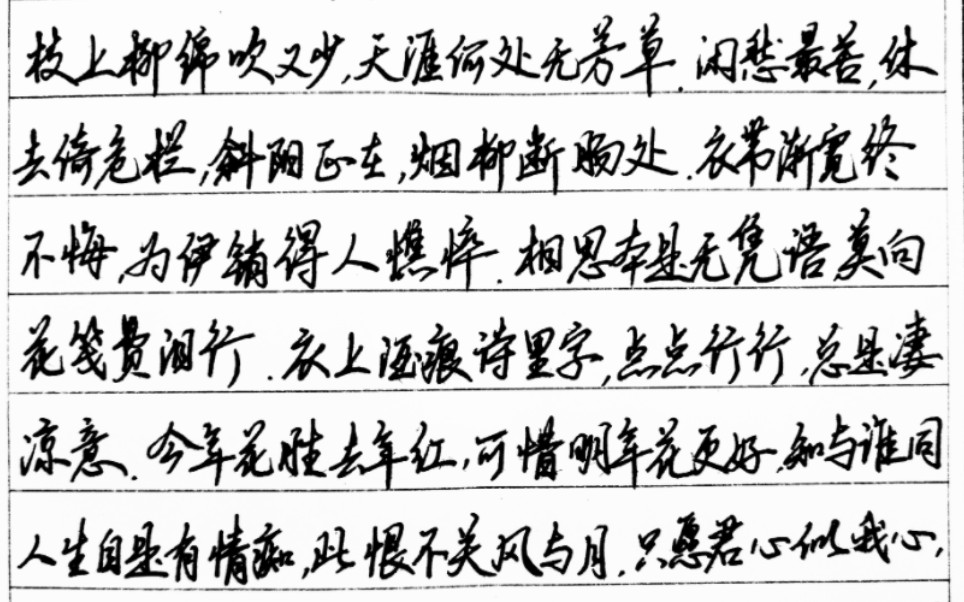 枝上柳绵吹又少,天涯何处无芳草.闲愁最苦,休
去倚危栏,斜阳正在,烟柳断肠处.衣带渐宽终
不悔,为伊销得人憔悴.相思本是无凭语,莫向
花笺费泪行.衣上酒痕诗里字,点点行行,总是凄
凉意.今年花胜去年红,可惜明年花更好,知与谁同
人生自是有情痴,此恨不关风与月.只愿君心似我心,